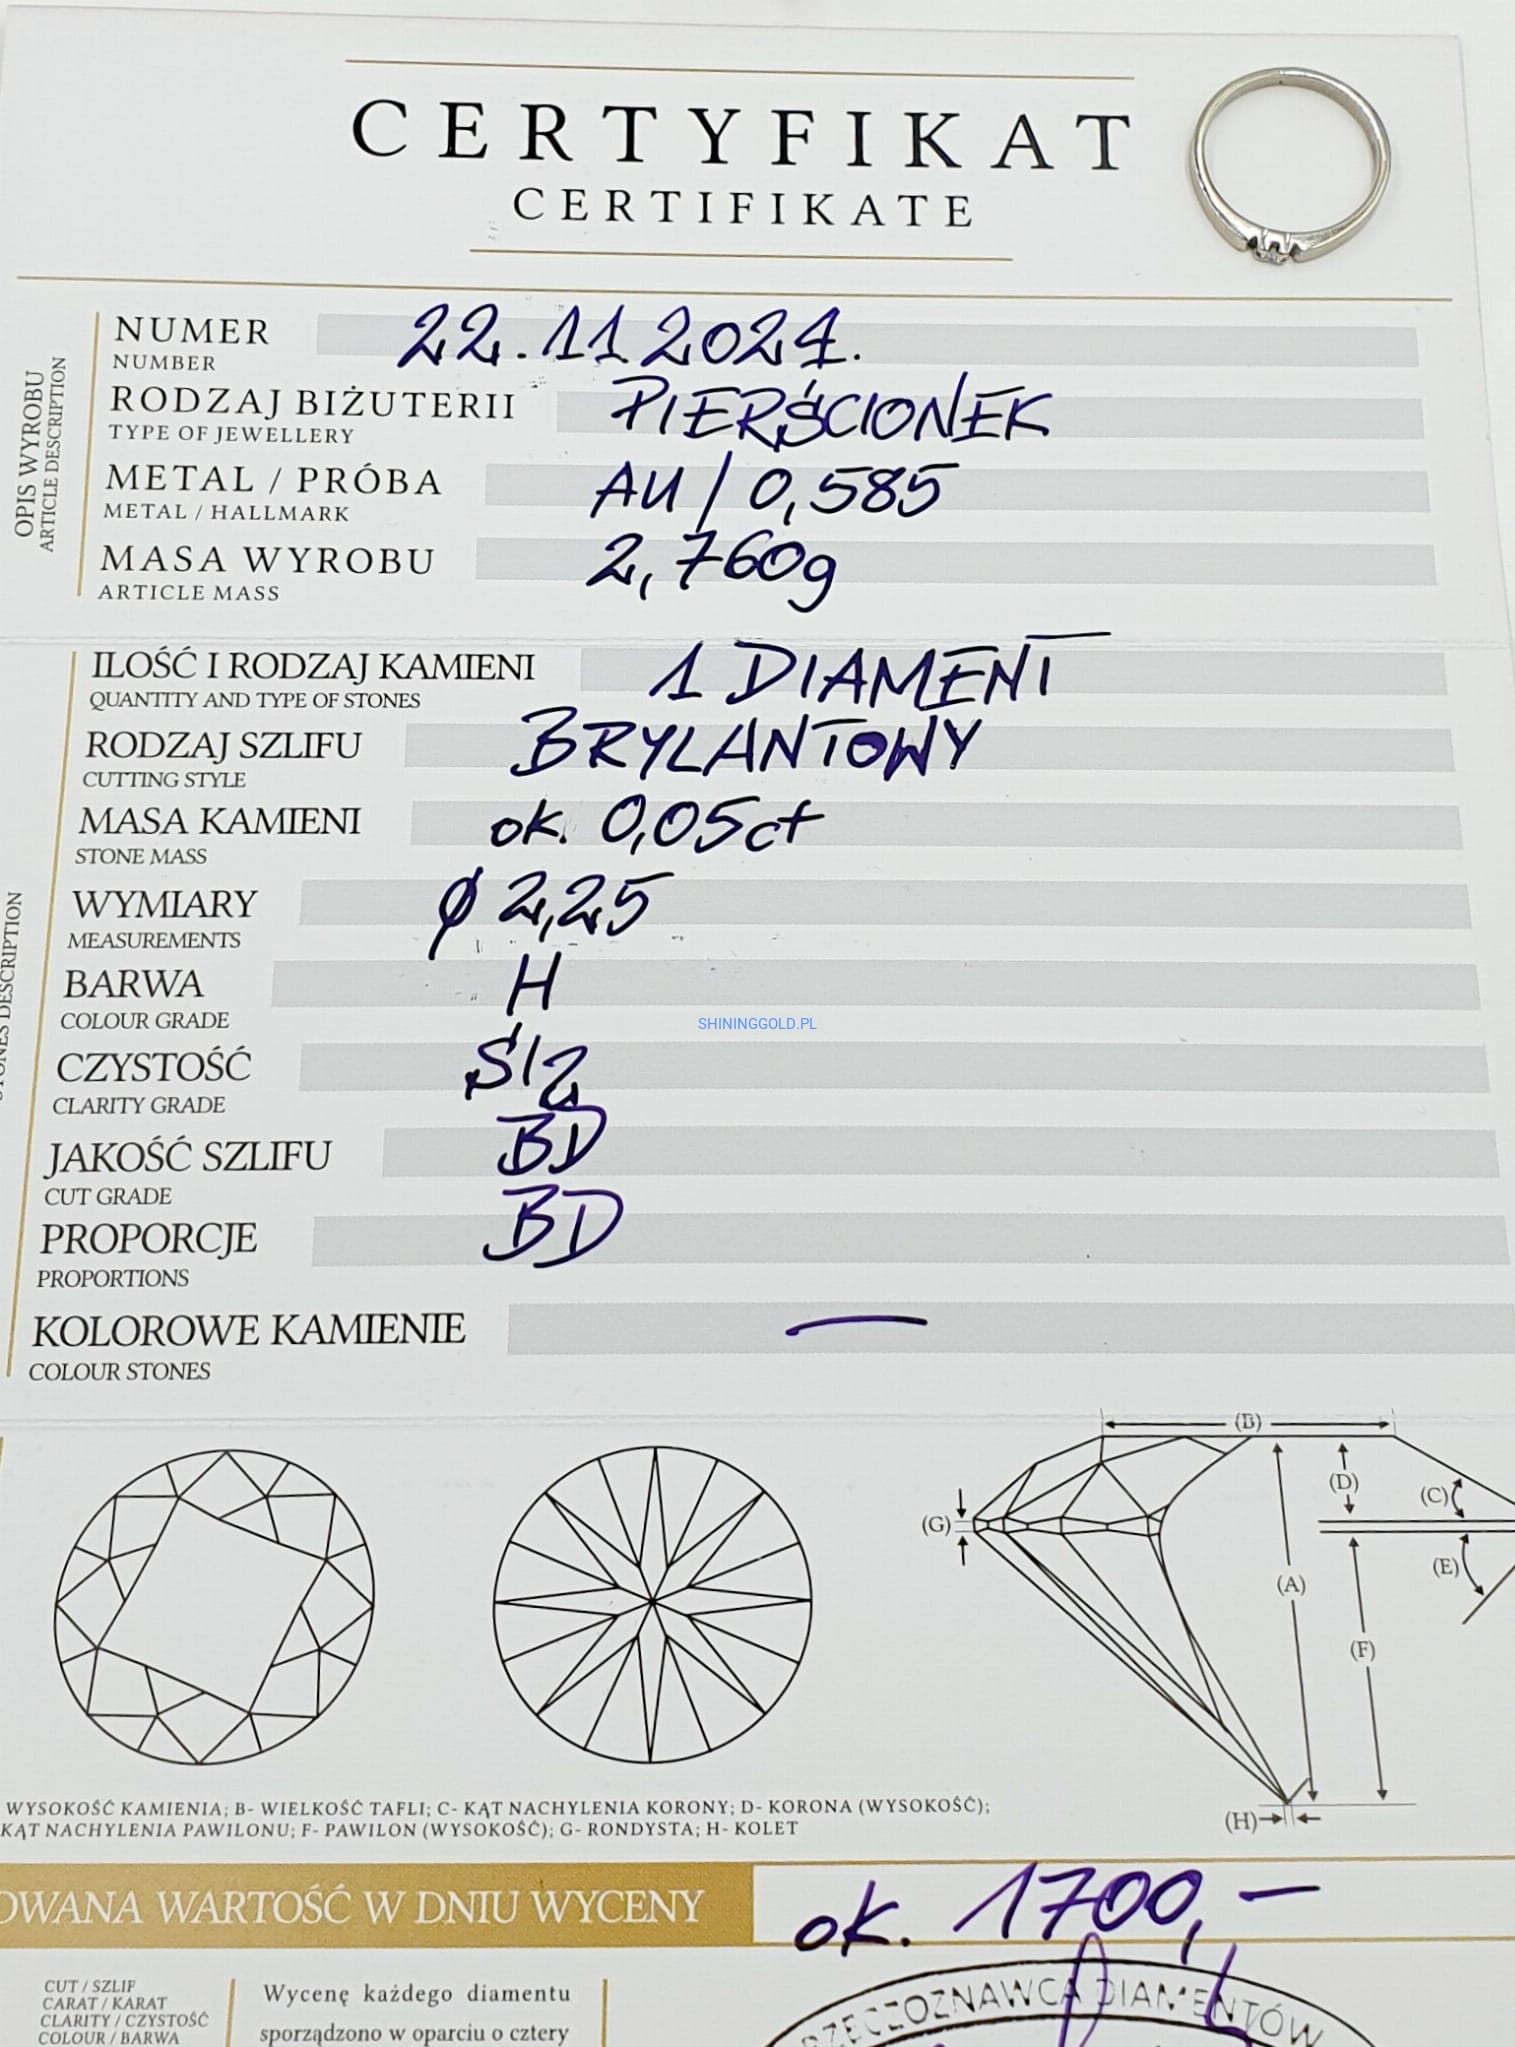 CERTYFIKAT
CERTIFIKATE
OPIS WYROBU
ARTICLE DESCRIPTION
NUMER 22.11.2024.
NUMBER
RODZAJ BIŻUTERII PIERŚCIONEK
TYPE OF JEWELLERY
METAL / PRÓBA AU / 0,585
METAL / HALLMARK
MASA WYROBU 2,760g
ARTICLE MASS
ILOŚĆ I RODZAJ KAMIENI 1 DIAMENT
QUANTITY AND TYPE OF STONES
RODZAJ SZLIFU BRYLANTOWY
CUTTING STYLE
MASA KAMIENI ok. 0,05ct
STONE MASS
WYMIARY ϕ 2,25
MEASUREMENTS
BARWA H
COLOUR GRADE
SHININGGOLD.PL
CZYSTOŚĆ SI2
CLARITY GRADE
JAKOŚĆ SZLIFU BD
CUT GRADE
PROPORCJE BD
PROPORTIONS
KOLOROWE KAMIENIE —
COLOUR STONES
DESCRIPTION
(B)
(D)
(C)
(G)
(E)
(A)
(F)
(H)
WYSOKOŚĆ KAMIENIA; B- WIELKOŚĆ TAFLI; C- KĄT NACHYLENIA KORONY; D- KORONA (WYSOKOŚĆ);
KĄT NACHYLENIA PAWILONU; F- PAWILON (WYSOKOŚĆ); G- RONDYSTA; H- KOLET
OWANA WARTOŚĆ W DNIU WYCENY ok. 1700,-
CUT / SZLIF
CARAT / KARAT
CLARITY / CZYSTOŚĆ
COLOUR / BARWA
Wycenę każdego diamentu
sporządzono w oparciu o cztery
RZECZOZNAWCA DIAMENTÓW